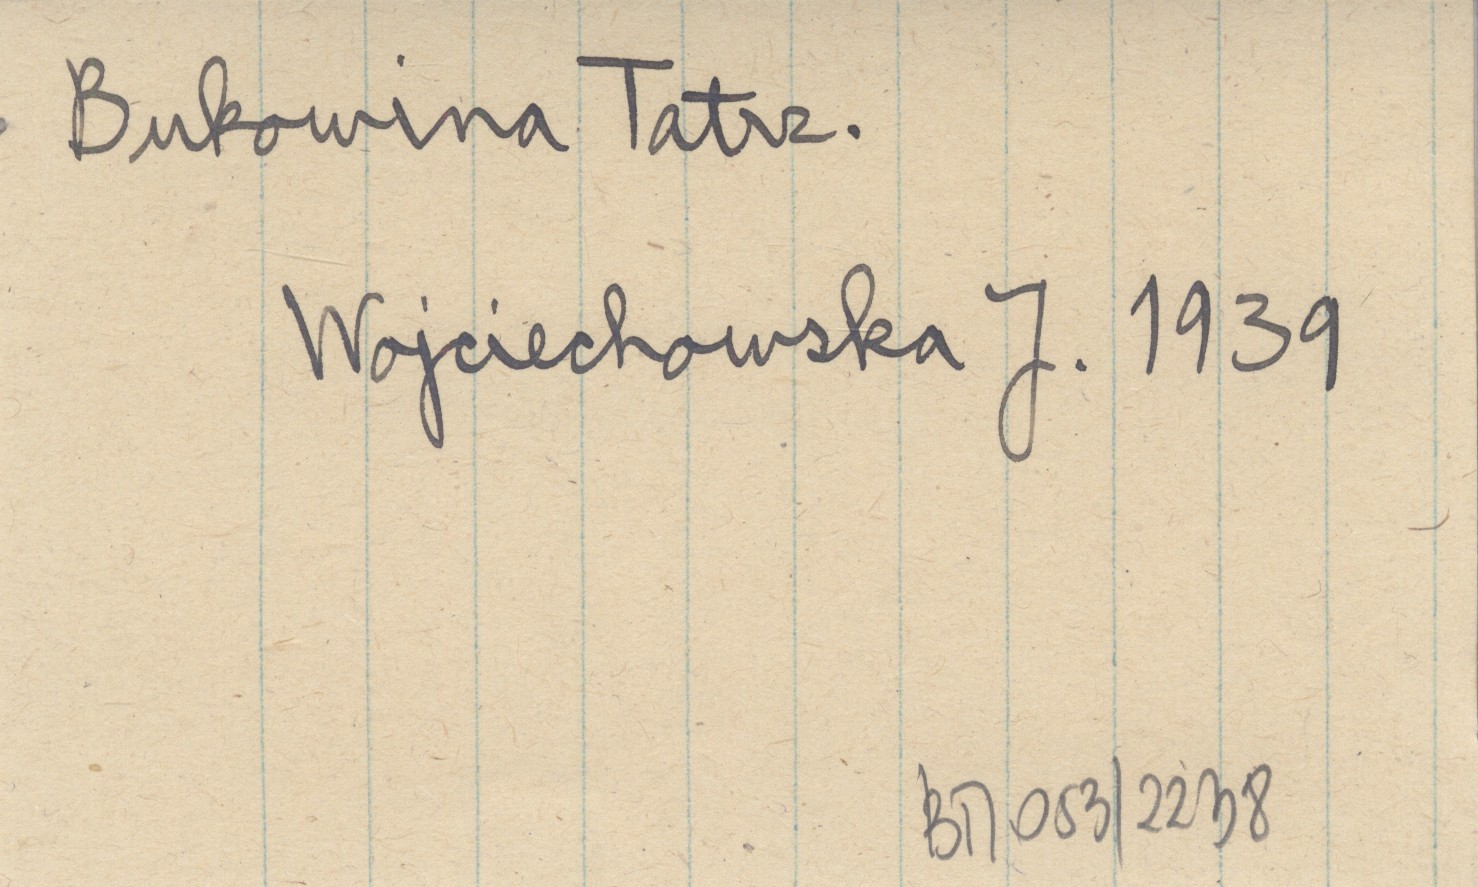 Bukowina Tatrz.
Wojciechowska J. 1939
BП 053/2238